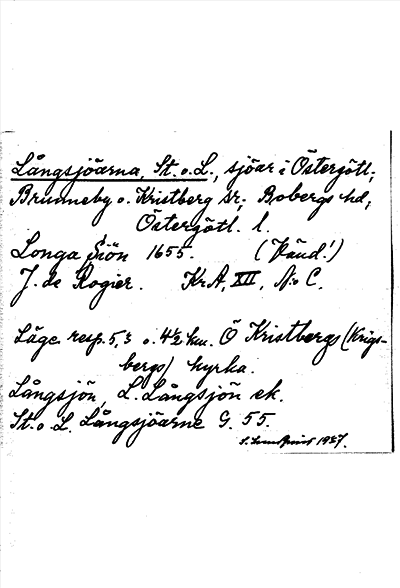 Långsjöarna, St. o. L., sjöar i Östergötl.;
Brunneby o. Kristberg sr; Bobergs hd;
Östergötl. l.
Longa Siön 1655. (Händ!)
J. de Rogier. Kr.A, XII, N:o C.
Läge resp. 5,3 o. 4½ km. Ö Kristbergs (Krigs-
bergs) kyrka.
Långsjön, L. Långsjön ek.
St. o L. Långsjöarne G. 55.
1927.